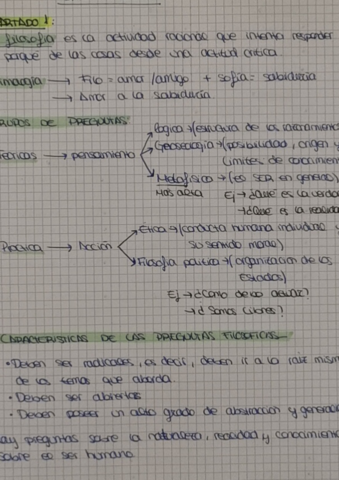 ARTADO 1:
filosofía es la actividad racional que intenta responder
porqué de las cosas desde una actitud crítica.
imología → Filo = ama / amigo + sofia = sabiduría
→ Amor a la sabiduría
RUPOS DE PREGUNTAS
Lógica → (estructura de los razonamiento
teóricas → pensamiento Gnoseología → (posibilidad, origen y
límites de conocimien
Metafísica → (es SER en general)
más allá Ej → ¿Qué es la verda
→ ¿Qué es la realida
Práctica → Acción Etica → (conducta humana individual y
su sentido moral)
Filosofía política → (organización de los
Estados)
Ej → ¿Cómo debo actuar?
→ ¿Somos libres?
CARACTERÍSTICAS DE LAS PREGUNTAS FILOSÓFICAS
• Deben ser radicales, es decir, deben ir a la raíz mism
de los temas que aborda.
• Deben ser abiertas
• Deben poseer un alto grado de abstracción y generali
ay preguntas sobre la naturaleza, realidad y conocimient
sobre el ser humano